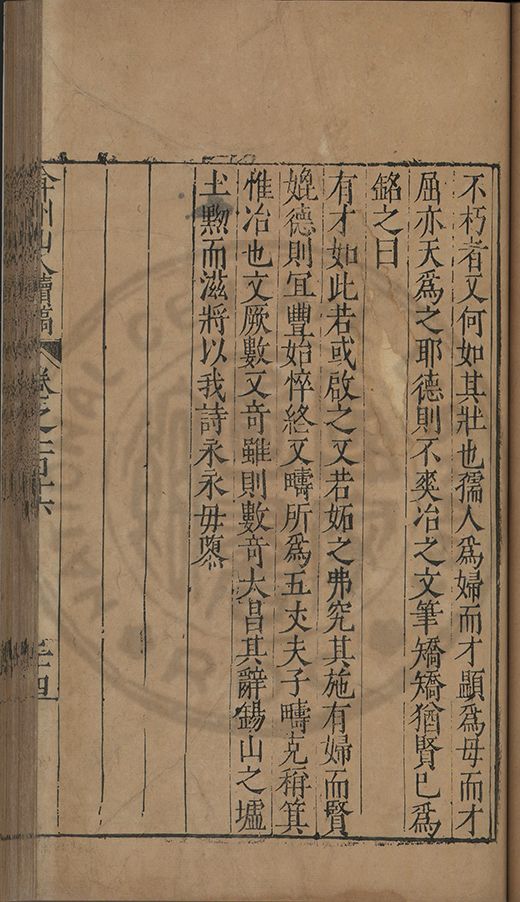 不朽者又何如其壯也孺人為婦而才顯為母而才
屈亦天為之耶德則不爽冶之文筆矯矯猶賢已為
銘之曰
有才如此若或啟之又若妬之弗究其施有婦而賢
娩德則宜豐始悴終又疇所為五丈夫子疇克稱箕
惟冶也文厥數又奇雖則數奇大昌其辭錫山之墟
土黝而滋將以我詩永永毋隳
弇州山人續稿
卷之一百十六
二十四